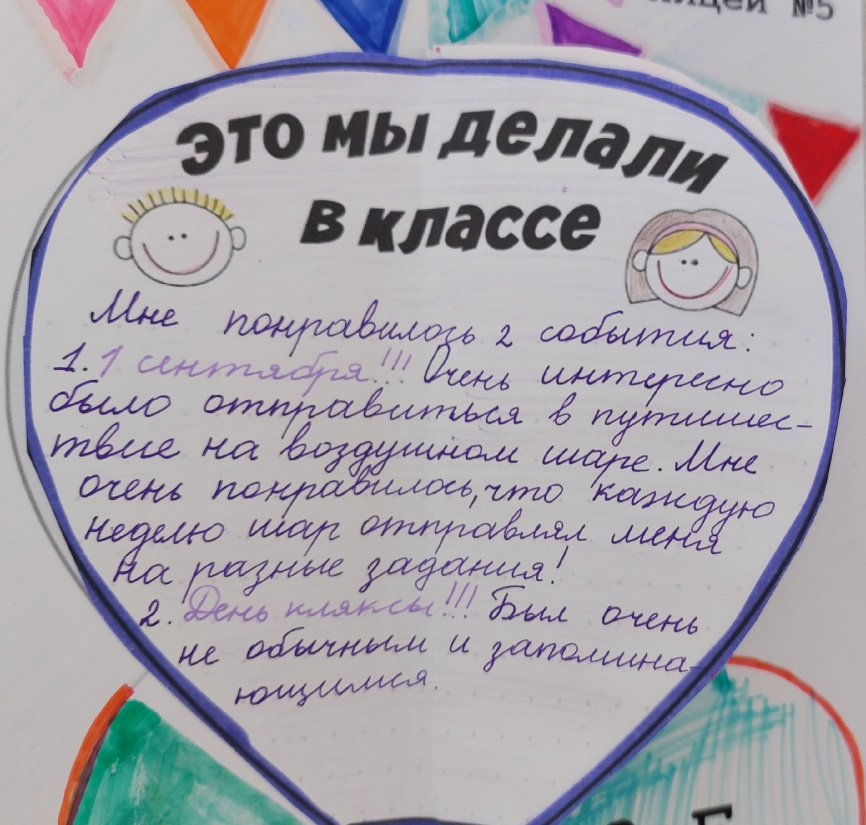 лицей №5
ЭТО МЫ ДЕЛАЛИ
В КЛАССЕ
Мне понравилось 2 события:
1. 1 сентября!!! Очень интересно
было отправиться в путишес-
твие на воздушном шаре. Мне
очень понравилось, что каждую
неделю шар отправлял меня
на разные задания!
2. День кляксы!!! Был очень
не обычным и запомина-
ющимся.